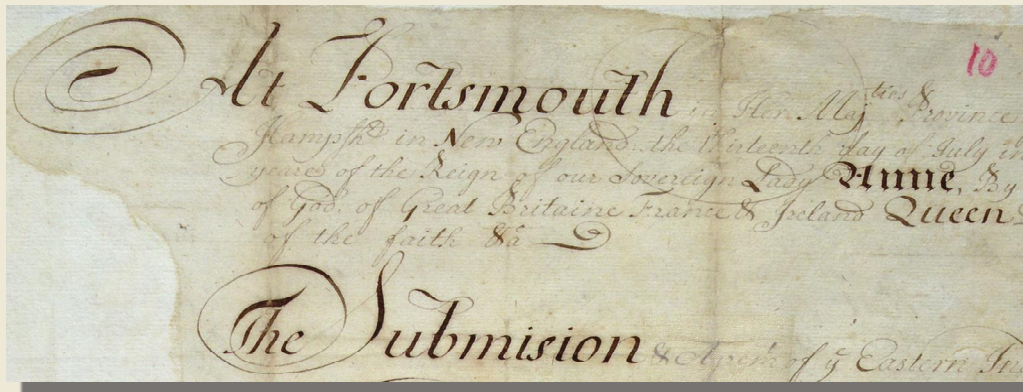 At Portsmouth in Her Maj.ties Province
10
Hampsh.e in New England. the thirteenth day of July in
years of the Reign of our Sovereign Lady Anne, By
of God. of Great Britaine France & Ireland Queen
of the faith &a
The Submision & of ye Eastern